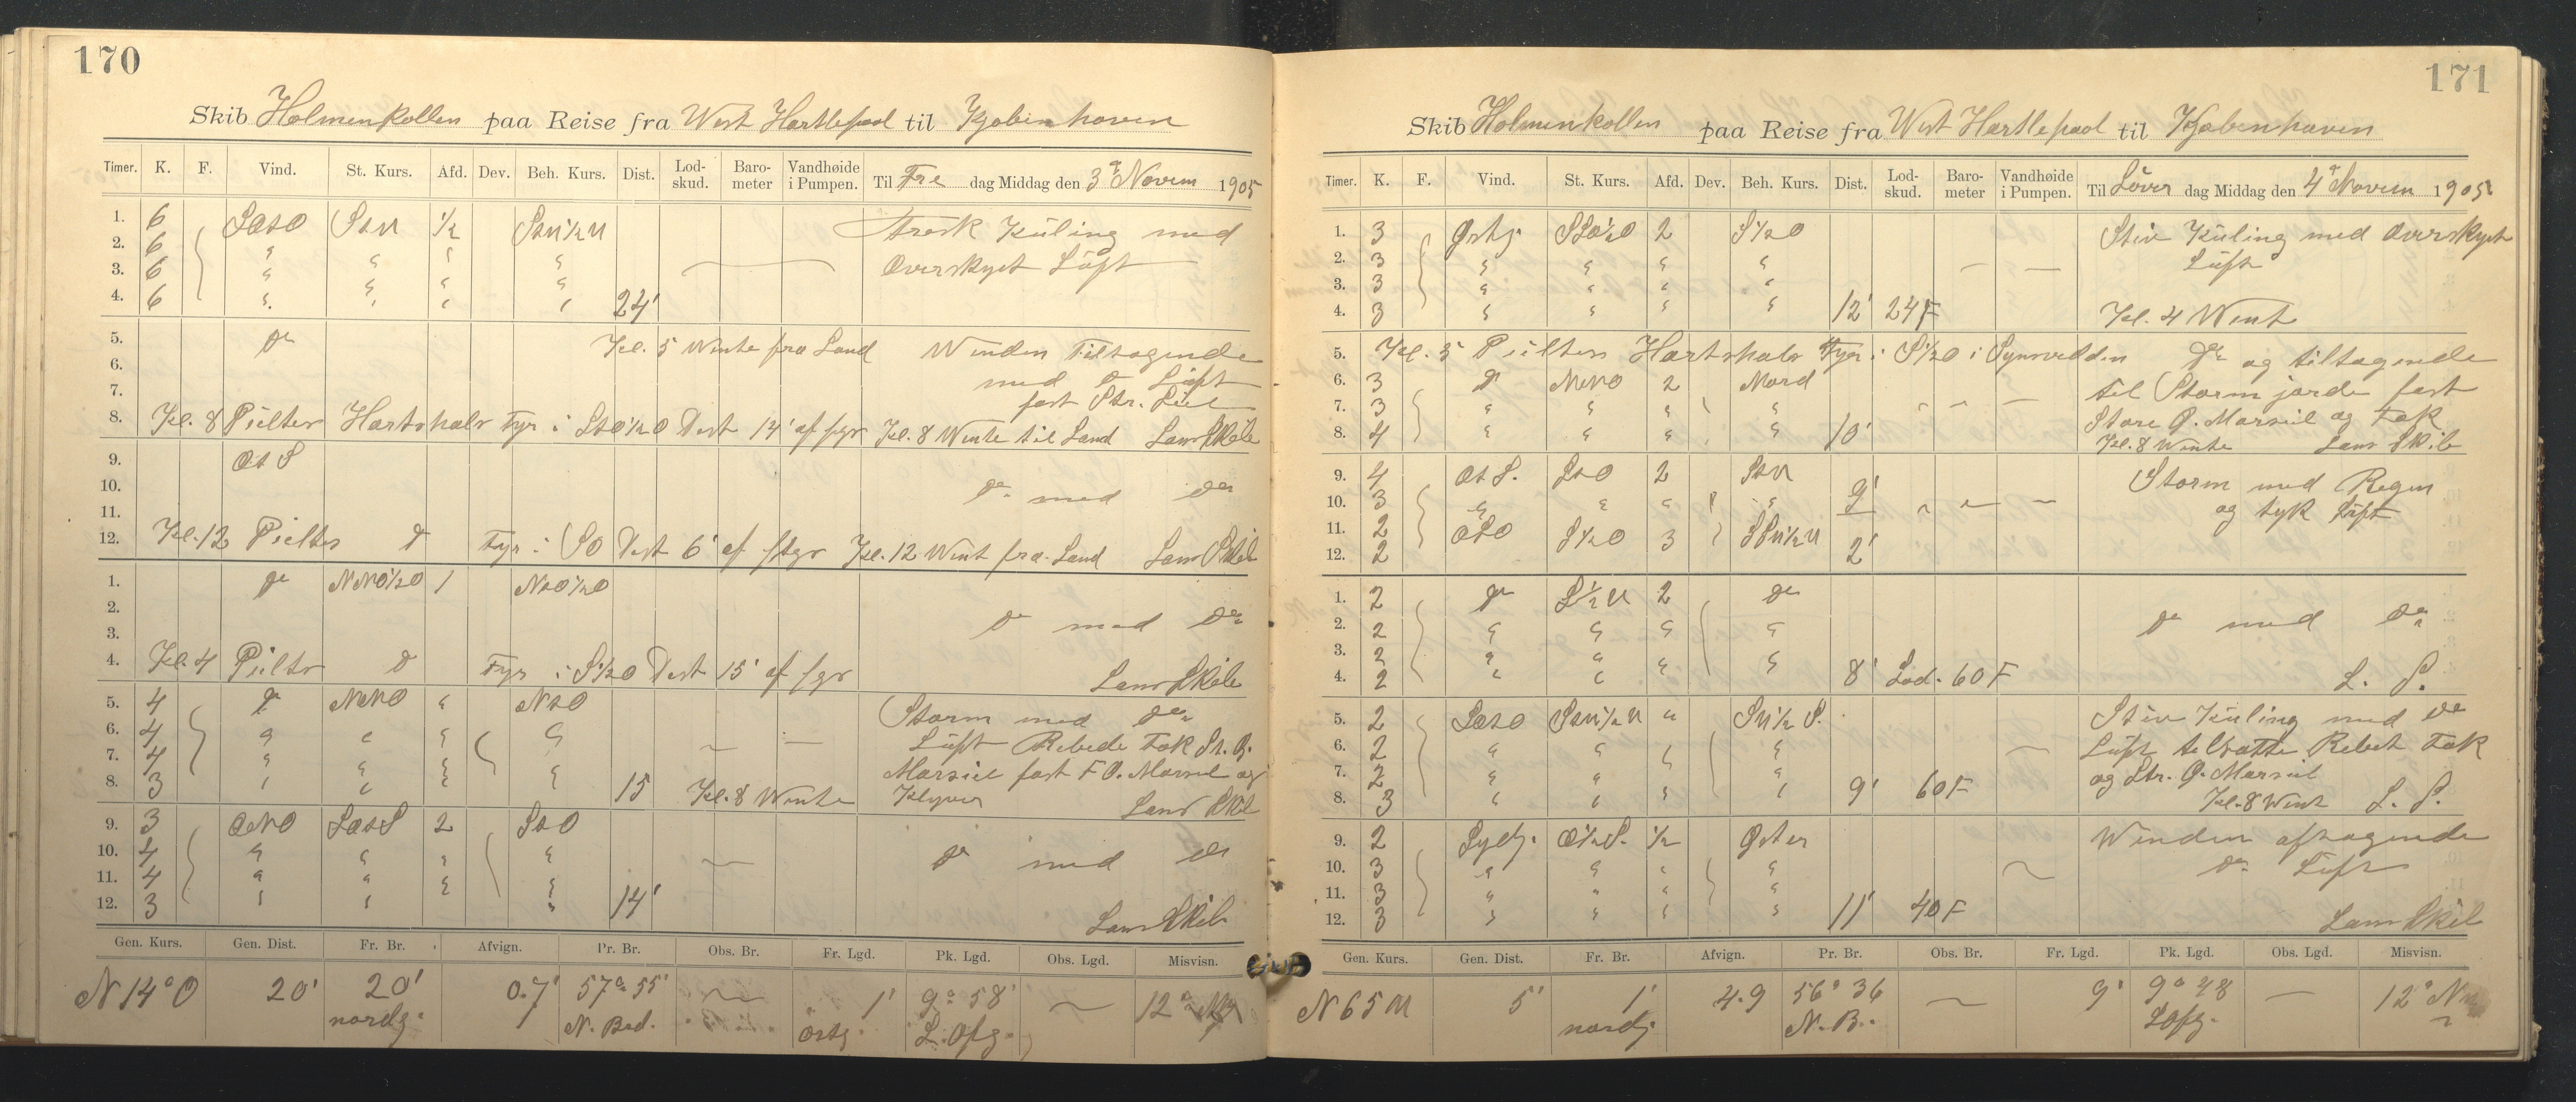 170
Skib Holmenkollen paa Reise fra West Hartlepool til Kjobenhaven
Timer. K. F. Vind. St. Kurs. Afd. Dev. Beh. Kurs. Dist. Lod-skud. Baro-meter Vandhøide i Pumpen. Til Fre dag Middag den 3de Novem 1905
1. 6 SOSO SSV ½ SSV½V Stærk Kuling med
2. 6 " " " "
3. 6 " " " " Overskyet Luft
4. 6 " " " " 24'
5. Do Kl. 5 Wente fra Land Winden tiltagende
6. med Do Luft
7. fast Str. Seil
8. Kl. 8 Peilter Hartshals Fyr i SSO½O Dist 14' af fyr Kl. 8 Wente til Land Lans & Skib
9. Ot S
10. Do med Do
11.
12. Kl. 12 Peilter Do Fyr i SO Dist 6' af fyr Kl. 12 Went fra Land Lans Skib
1. Do NNO½O 1 NtO½O
2. Do med Do
3.
4. Kl. 4 Peilter Do Fyr i S½O Dist 15' af fyr Lans Skib
5. 4 Do NNO " NtO Storm med Do
6. 4 " " " " Luft Rebede Fok St. B.
7. 4 " " " " Marseil fast F O. Marseil og
8. 3 " " " " 15 Kl. 8 Wente Klyver Lans Skib
9. 3 ONO SOtS 2 StO
10. 4 " " " " Do med Do
11. 4 " " " "
12. 3 " " " 14' Lans Skib
Gen. Kurs. Gen. Dist. Fr. Br. Afvign. Pr. Br. Obs. Br. Fr. Lgd. Pk. Lgd. Obs. Lgd. Misvisn.
N 14° O 20' 20' 0.7' 57° 55' 1' 9° 58' 12°
nordg. N. Bed. östg. L. Ofg.
171
Skib Holmenkollen paa Reise fra West Hartlepool til Kjobenhaven
Timer. K. F. Vind. St. Kurs. Afd. Dev. Beh. Kurs. Dist. Lod-skud. Baro-meter Vandhøide i Pumpen. Til Löver dag Middag den 4de Novem 1905
1. 3 Østg. SSO½O 2 S½O Stiv Kuling med Overskyet
2. 3 " " " " Luft
3. 3 " " " "
4. 3 " " " " 12' 24F Kl. 4 Went
5. Kl. 5 Peilter Hartshals Fyr i S½O i Synsvidden Do og tiltagende
6. 3 Do NNO 2 Nord til Storm jorde fast
7. 3 " " " " Store Ø. Marseil og Fok
8. 4 " " " " 10' Kl. 8 Wente Lans Skib
9. 4 Ot S. StO 2 StV Storm med Regn
10. 3 " " " " 9' og tyk Luft
11. 2 OSO S½O 3 SSV½V
12. 2 2'
1. 2 Do S½V 2 Do
2. 2 " " " " Do med Do
3. 2 " " " "
4. 2 " " " " 8' Lod. 60 F L. S.
5. 2 SOSO SSV½V " SV½S. Stiv Kuling med Do
6. 2 " " " " Luft tilsatte Rebet Fok
7. 2 " " " " og Str. Ø. Marseil
8. 3 " " " " 9' 60F Kl. 8 Went L. S.
9. 2 Sydg. O½S. ½ Øster Winden aftagende
10. 3 " " " " Do Luft
11. 3 " " " "
12. 3 " " " " 11' 40F Lans Skib
Gen. Kurs. Gen. Dist. Fr. Br. Afvign. Pr. Br. Obs. Br. Fr. Lgd. Pk. Lgd. Obs. Lgd. Misvisn.
N 65 V 5' 1' 4.9 56° 36 9' 9° 48 12°
nordg. N. B. L Ofg.